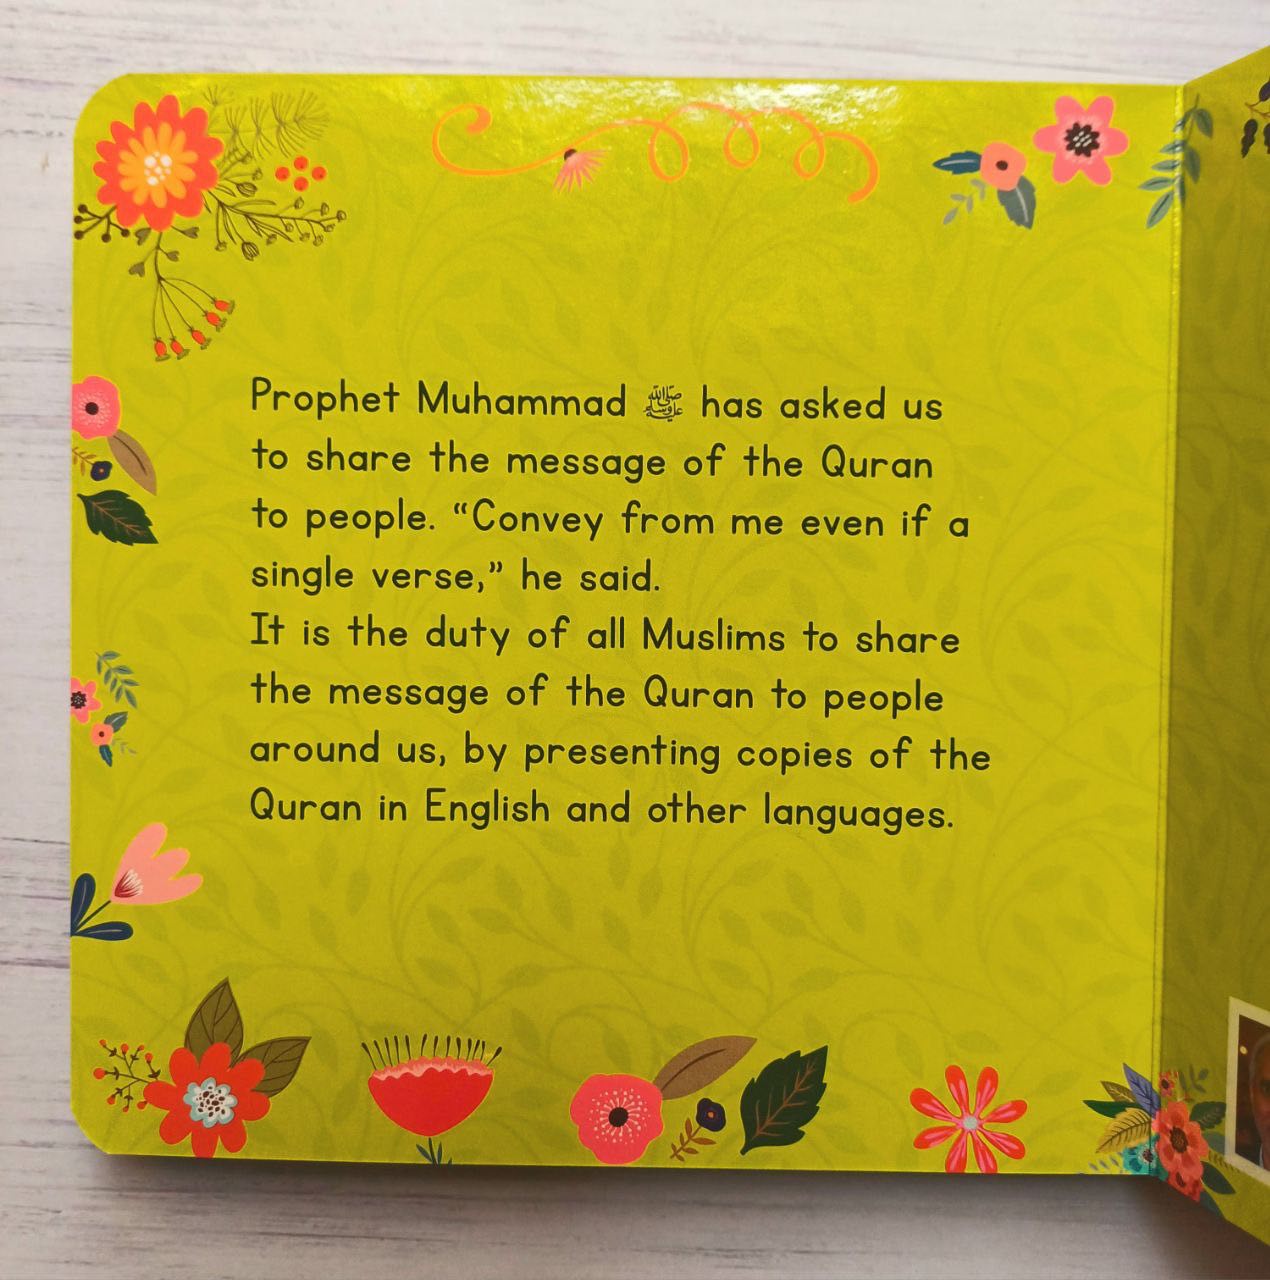 Prophet Muhammad ﷺ has asked us
to share the message of the Quran
to people. “Convey from me even if a
single verse,” he said.
It is the duty of all Muslims to share
the message of the Quran to people
around us, by presenting copies of the
Quran in English and other languages.